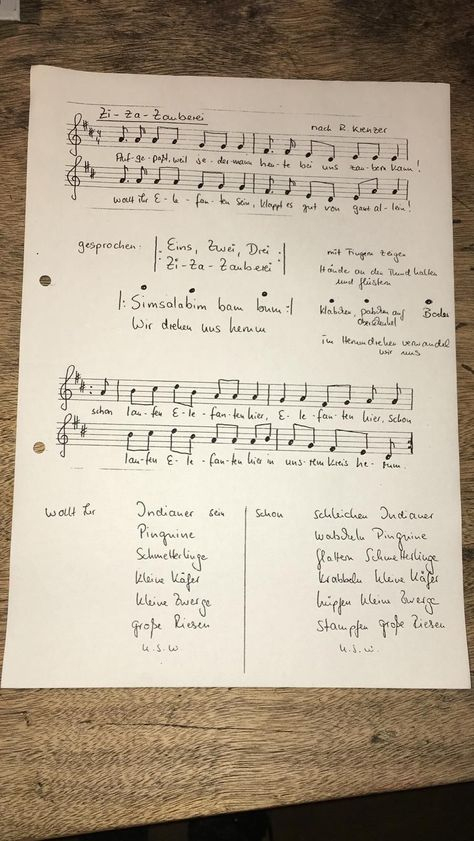 Zi-Za-Zauberei
nach R. Krenzer
Auf-ge-paßt, weil je-dermann heu-te bei uns zau-bern kann!
wollt ihr E-le-fan-ten sein, klappt es gut von ganz al-lein!
gesprochen: |: Eins, Zwei, Drei :| mit Fingern zeigen
|: Zi-Za-Zauberei :| Hände an den Mund halten
und flüstern
|: Simsalabim bam bum :| Klatschen, patschen auf Boden
Oberschenkel
Wir drehen uns herum im Herumdrehen verwandeln
wir uns
schon lau-fen E-le-fan-ten hier, E-le-fan-ten hier, schon
lau-fen E-le-fan-ten hier in uns-rem Kreis he-rum.
wollt ihr Indianer sein schon schleichen Indianer
Pinguine watscheln Pinguine
Schmetterlinge flattern Schmetterlinge
kleine Käfer krabbeln kleine Käfer
kleine Zwerge hüpfen kleine Zwerge
große Riesen stampfen große Riesen
u.s.w. u.s.w.